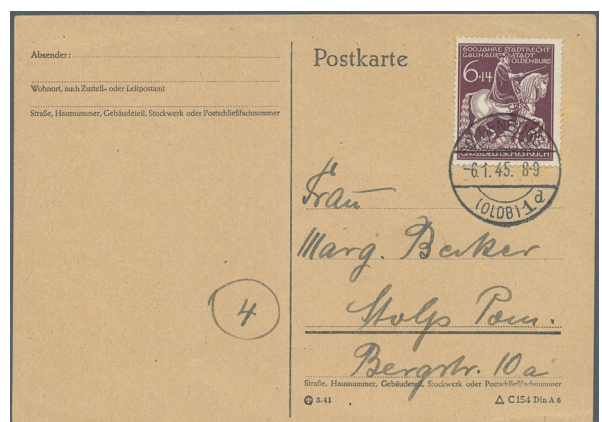 Absender:
Wohnort, auch Zustell- oder Leitpostamt
Straße, Hausnummer, Gebäudeteil, Stockwerk oder Postschließfachnummer
4
Postkarte
600 JAHRE STADTRECHT
GAUHAUPTSTADT
OLDENBURG
6+14
GROSSDEUTSCHES REICH
-6.1.45. 8-9
(OLDB) 1d
Frau
Marg. Becker
Stolp Pom.
Bergstr. 10a
Straße, Hausnummer, Gebäudeteil, Stockwerk oder Postschließfachnummer
3.41
C 154 Din A 6